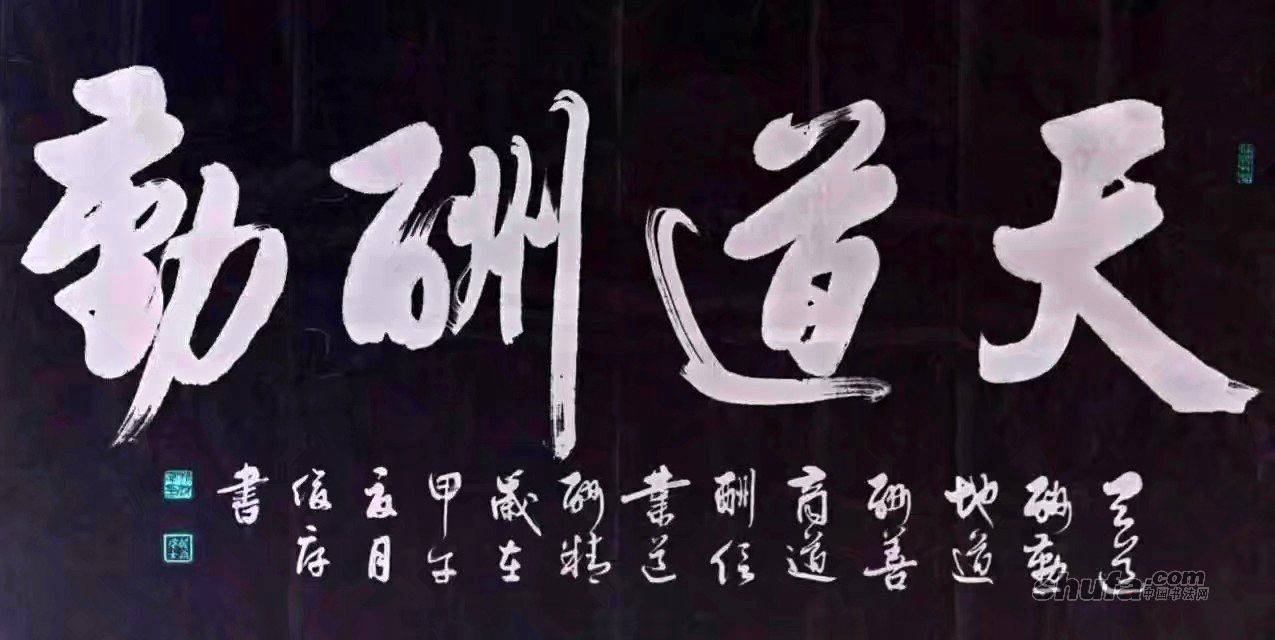 天道酬勤
天道
酬勤
地道
酬善
商道
酬信
業道
酬精
歲在
甲午
夏月
書
shufa.com
中国书法网